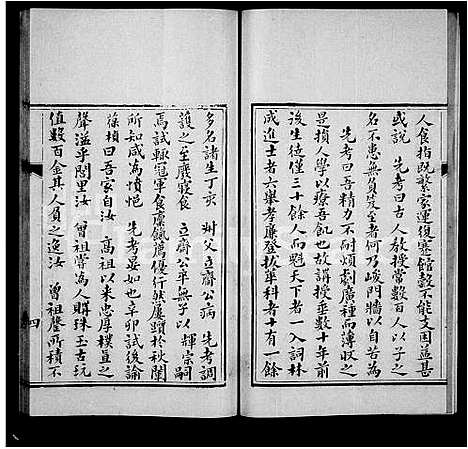 人食指既繁家運復蹇館穀不能支困益甚
或說　先考曰古人教授常數百人以子之
名不患無負笈至者何乃峻門牆以自苦為
先考曰吾精力不耐煩劇廣種而薄収之
是損人學以療吾飢也故謂授垂數十年前
後生徒僅三十餘人而魁天下者一入詞林
成進士者六舉孝廉登拔萃科者十有一餘
多名諸生丁亥　叔父立齋公病　先考調
護之至廢寢食　立齋公卒無子以　輝宗嗣
焉試輒冠軍食廩餼薦優行然屢躓於秋闈
所知咸為憤悒　先考晏如也辛卯試後諭
葆楨曰吾家自汝　高祖以來忠厚樸直之
聲溢乎閭里汝　曾祖嘗為人購珠玉古玩
值數百金其人負之逸汝　曾祖罄所積不
四